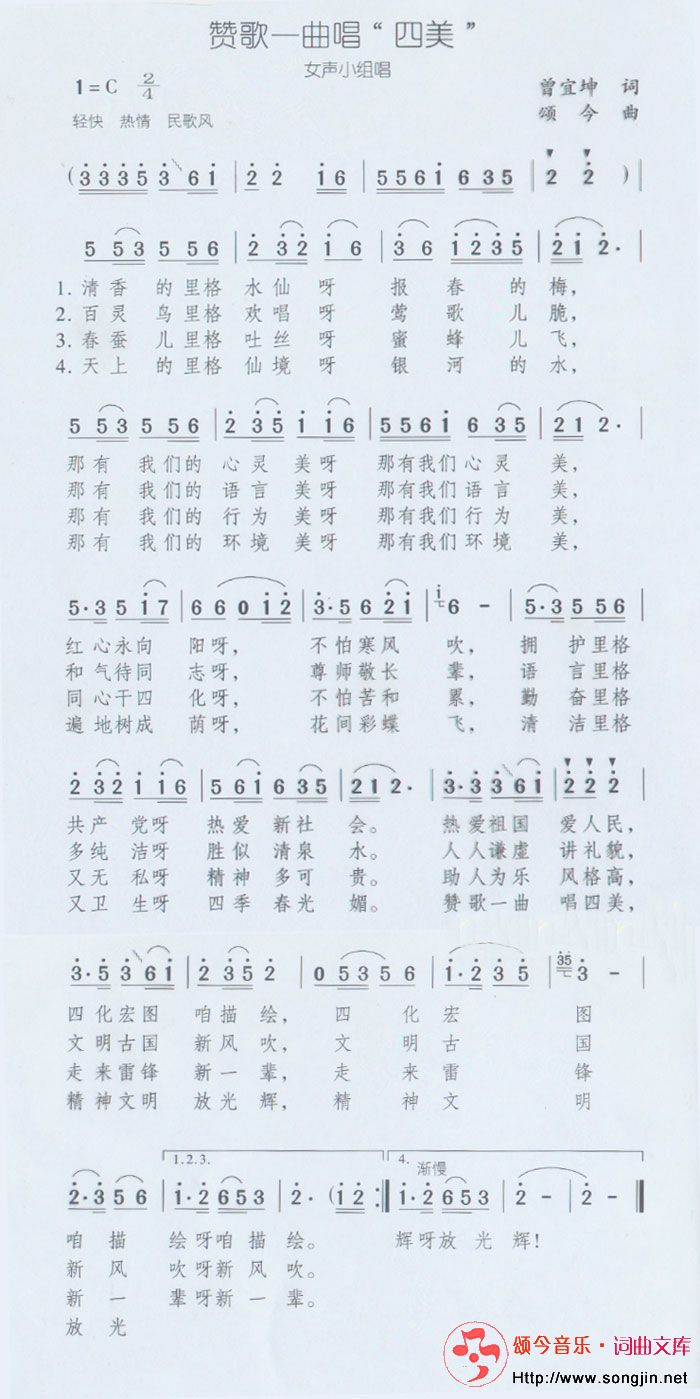 赞歌一曲唱“四美”
女声小组唱
1=C 2/4
曾宜坤 词
颂今 曲
轻快 热情 民歌风
(3335 3 61 | 2 2 16 | 5561 6 35 | 2 2 )|
5 53 5 56 | 2 32 1 16 | 3 6 1235 | 212· |
1. 清香 的里格 水仙 呀 报 春 的 梅,
2. 百灵 鸟里格 欢唱 呀 莺 歌 儿 脆,
3. 春蚕 儿里格 吐丝 呀 蜜 蜂 儿 飞,
4. 天上 的里格 仙境 呀 银 河 的 水,
5 53 5 56 | 2 35 1 16 | 5561 6 35 | 212· |
那有 我们的 心灵 美呀 那有我们心灵 美,
那有 我们的 语言 美呀 那有我们语言 美,
那有 我们的 行为 美呀 那有我们行为 美,
那有 我们的 环境 美呀 那有我们环境 美,
5·3 5 17 | 66 0 12 | 3·5 6 21 | i七6 - | 5·3 5 56 |
红心永向 阳呀, 不怕寒风 吹, 拥 护里格
和气待同 志呀, 尊师敬长 辈, 语 言里格
同心干四 化呀, 不怕苦和 累, 勤 奋里格
遍地树成 荫呀, 花间彩蝶 飞, 清 洁里格
2 32 1 16 | 5 61 6 35 | 212· | 3·3 3 61 | 2 2 2 |
共产 党呀 热爱 新社 会。 热爱祖国 爱人民,
多纯 洁呀 胜似 清泉 水。 人人谦虚 讲礼貌,
又无 私呀 精神 多可 贵。 助人为乐 风格高,
又卫 生呀 四季 春光 媚。 赞歌一曲 唱四美,
3·5 3 61 | 2 35 2 | 0 53 5 6 | 1·2 3 5 | 35七3 - |
四化宏图 咱描绘, 四 化 宏 图
文明古国 新风吹, 文 明 古 国
走来雷锋 新一辈, 走 来 雷 锋
精神文明 放光辉, 精 神 文 明
1.2.3.
4. 渐慢
2·3 56 | 1·2 653 | 2· (12 :| 1·2 653 | 2 - | 2 - ‖
咱 描 绘呀咱 描 绘。 辉呀放 光 辉!
新 风 吹呀新 风 吹。
新 一 辈呀新 一 辈。
放 光
颂今音乐·词曲文库
Http://www.songjin.net